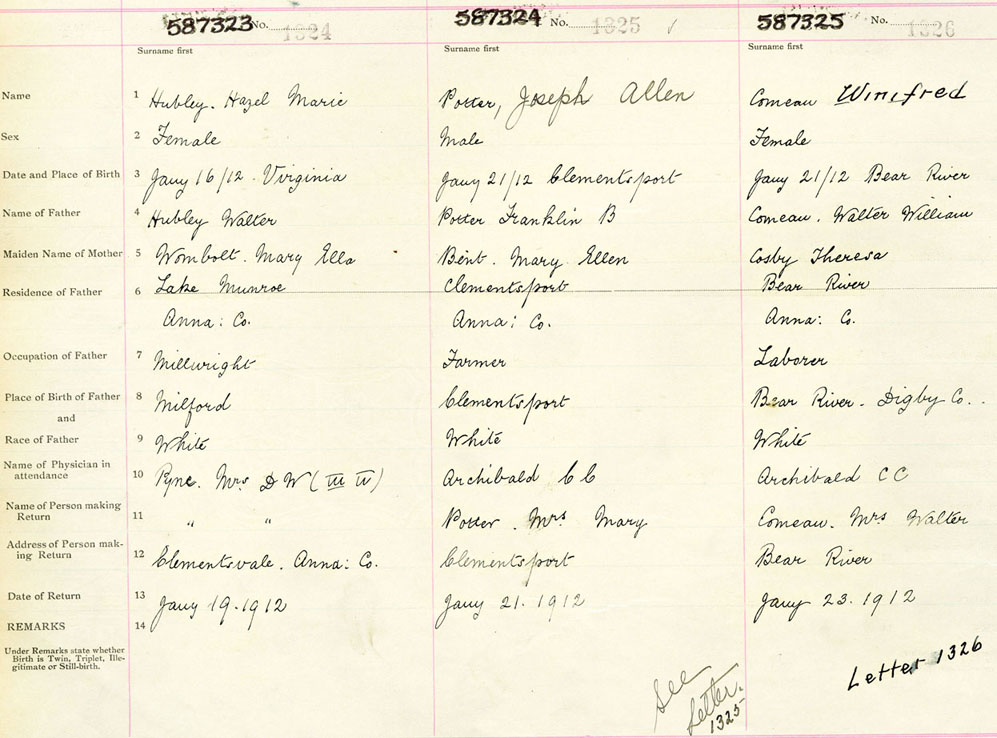 587323 No. 1324 587324 No. 1325 587325 No. 1326
Surname first Surname first Surname first
Name 1 Hubley. Hazel Marie Potter, Joseph Allen Comeau Winifred
Sex 2 Female Male Female
Date and Place of Birth 3 Jany 16/12 Virginia Jany 21/12 Clementsport Jany 21/12 Bear River
Name of Father 4 Hubley Walter Potter Franklin B Comeau. Walter William
Maiden Name of Mother 5 Wombolt. Mary Ella Bent. Mary Ellen Cosby Theresa
Residence of Father 6 Lake Munroe Clementsport Bear River
Anna: Co. Anna: Co. Anna: Co.
Occupation of Father 7 Millwright Farmer Laborer
Place of Birth of Father 8 Milford Clementsport Bear River. Digby Co..
and
Race of Father 9 White White White
Name of Physician in
attendance 10 Pyne. Mrs D W (III IV) Archibald C C Archibald C C
Name of Person making
Return 11 " " Potter. Mrs Mary Comeau. Mrs Walter
Address of Person mak-
ing Return 12 Clementsvale. Anna: Co. Clementsport Bear River
Date of Return 13 Jany 19. 1912 Jany 21. 1912 Jany 23. 1912
REMARKS 14
Under Remarks state whether
Birth is Twin, Triplet, Ille-
gitimate or Still-birth.
See
Letter.
1325
Letter 1326